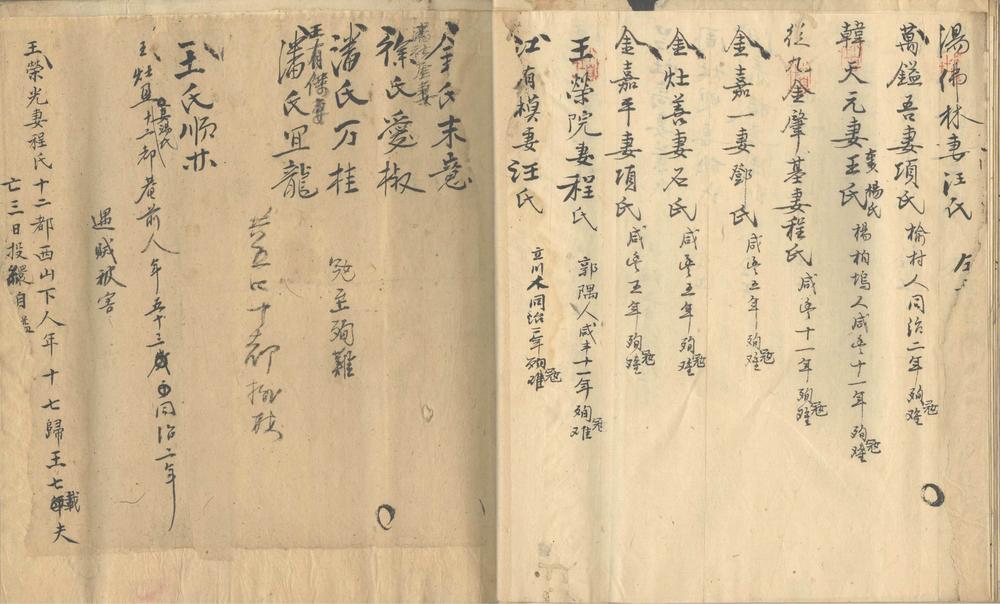 湯佛林妻汪氏
萬鎰吾妻項氏 榆村人同治二年殉难
韓天元妻王氏 楊氏 楊柏塢人咸豊十一年殉难
從九金肇基妻程氏 咸豊十一年殉难
金嘉一妻鄧氏 咸豊五年殉难
金灶善妻石氏 咸豊五年殉难
金嘉平妻項氏 咸豊五年殉难
王榮院妻程氏 郭隅人咸丰十一年殉难
江有模妻汪氏 同治三年殉难
余氏末意
徐氏愛椒
潘氏万桂 寇至殉難
王有傑妻
潘氏宜龍 共五口十都
王氏順廿
十二都巷前人年五十三歲由同治二年
遇賊被害
王榮光妻程氏十二都西山下人年十七歸王七載夫
亡三日投繯自尽